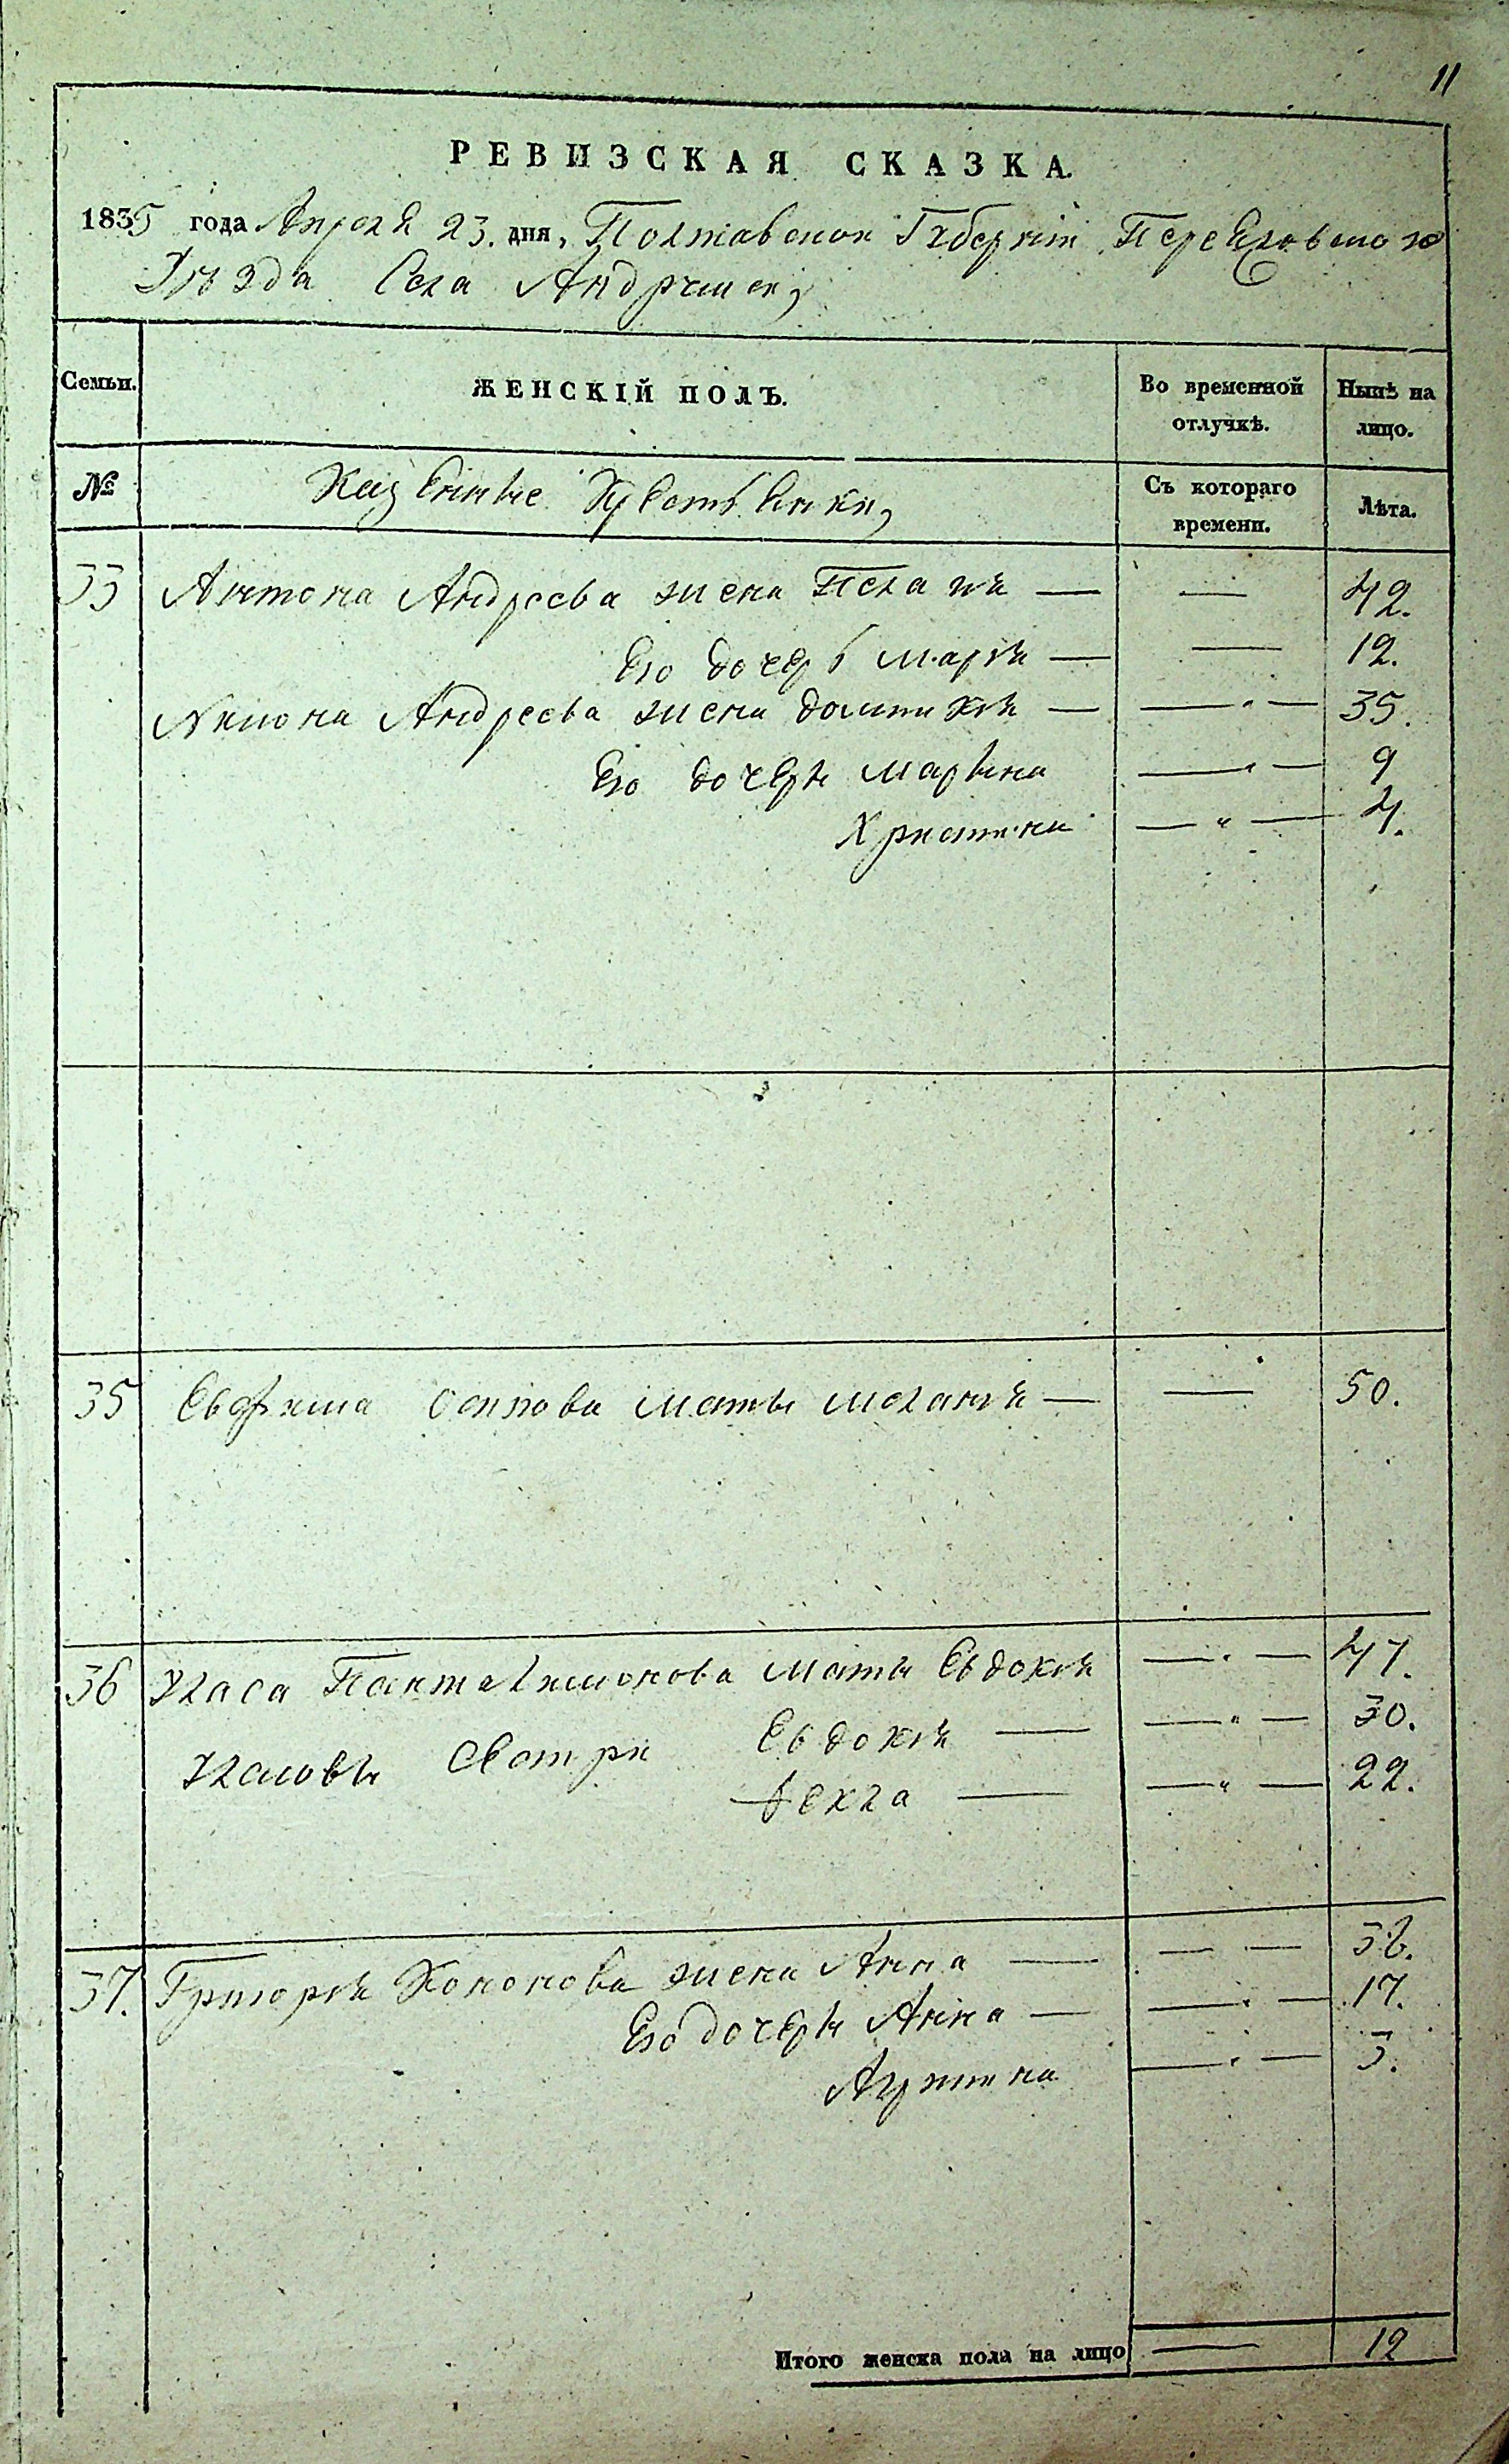 11
РЕВИЗСКАЯ СКАЗКА.
1835 года Апреля 23. дня, Полтавской Губерніи Переяловского
Уезда Села Андруши
Семьи. ЖЕНСКІЙ ПОЛЪ. Во временной отлучкѣ. Нынѣ на лицо.
№ Казенные Крестьянки Съ котораго времени. Лѣта.
33 Антона Андреева жена Пелагия — — 42.
Его дочерь Мария — — 12.
Андреева жена Домникия — — " — 35.
Его дочери Марина — " — 9
Христина — " — 4.
35 Евфима Осипова мать Мелания — — 50.
36 Власа Пантелимонова мать Евдокия — " — 47.
Власовы сестри Евдокия — — " — 30.
Ѳекла — — " — 22.
37. Григория Кононова жена Анна — — " — 36.
Его дочери Анна — — " — 17.
— " — 3.
Итого женска пола на лицо — 12